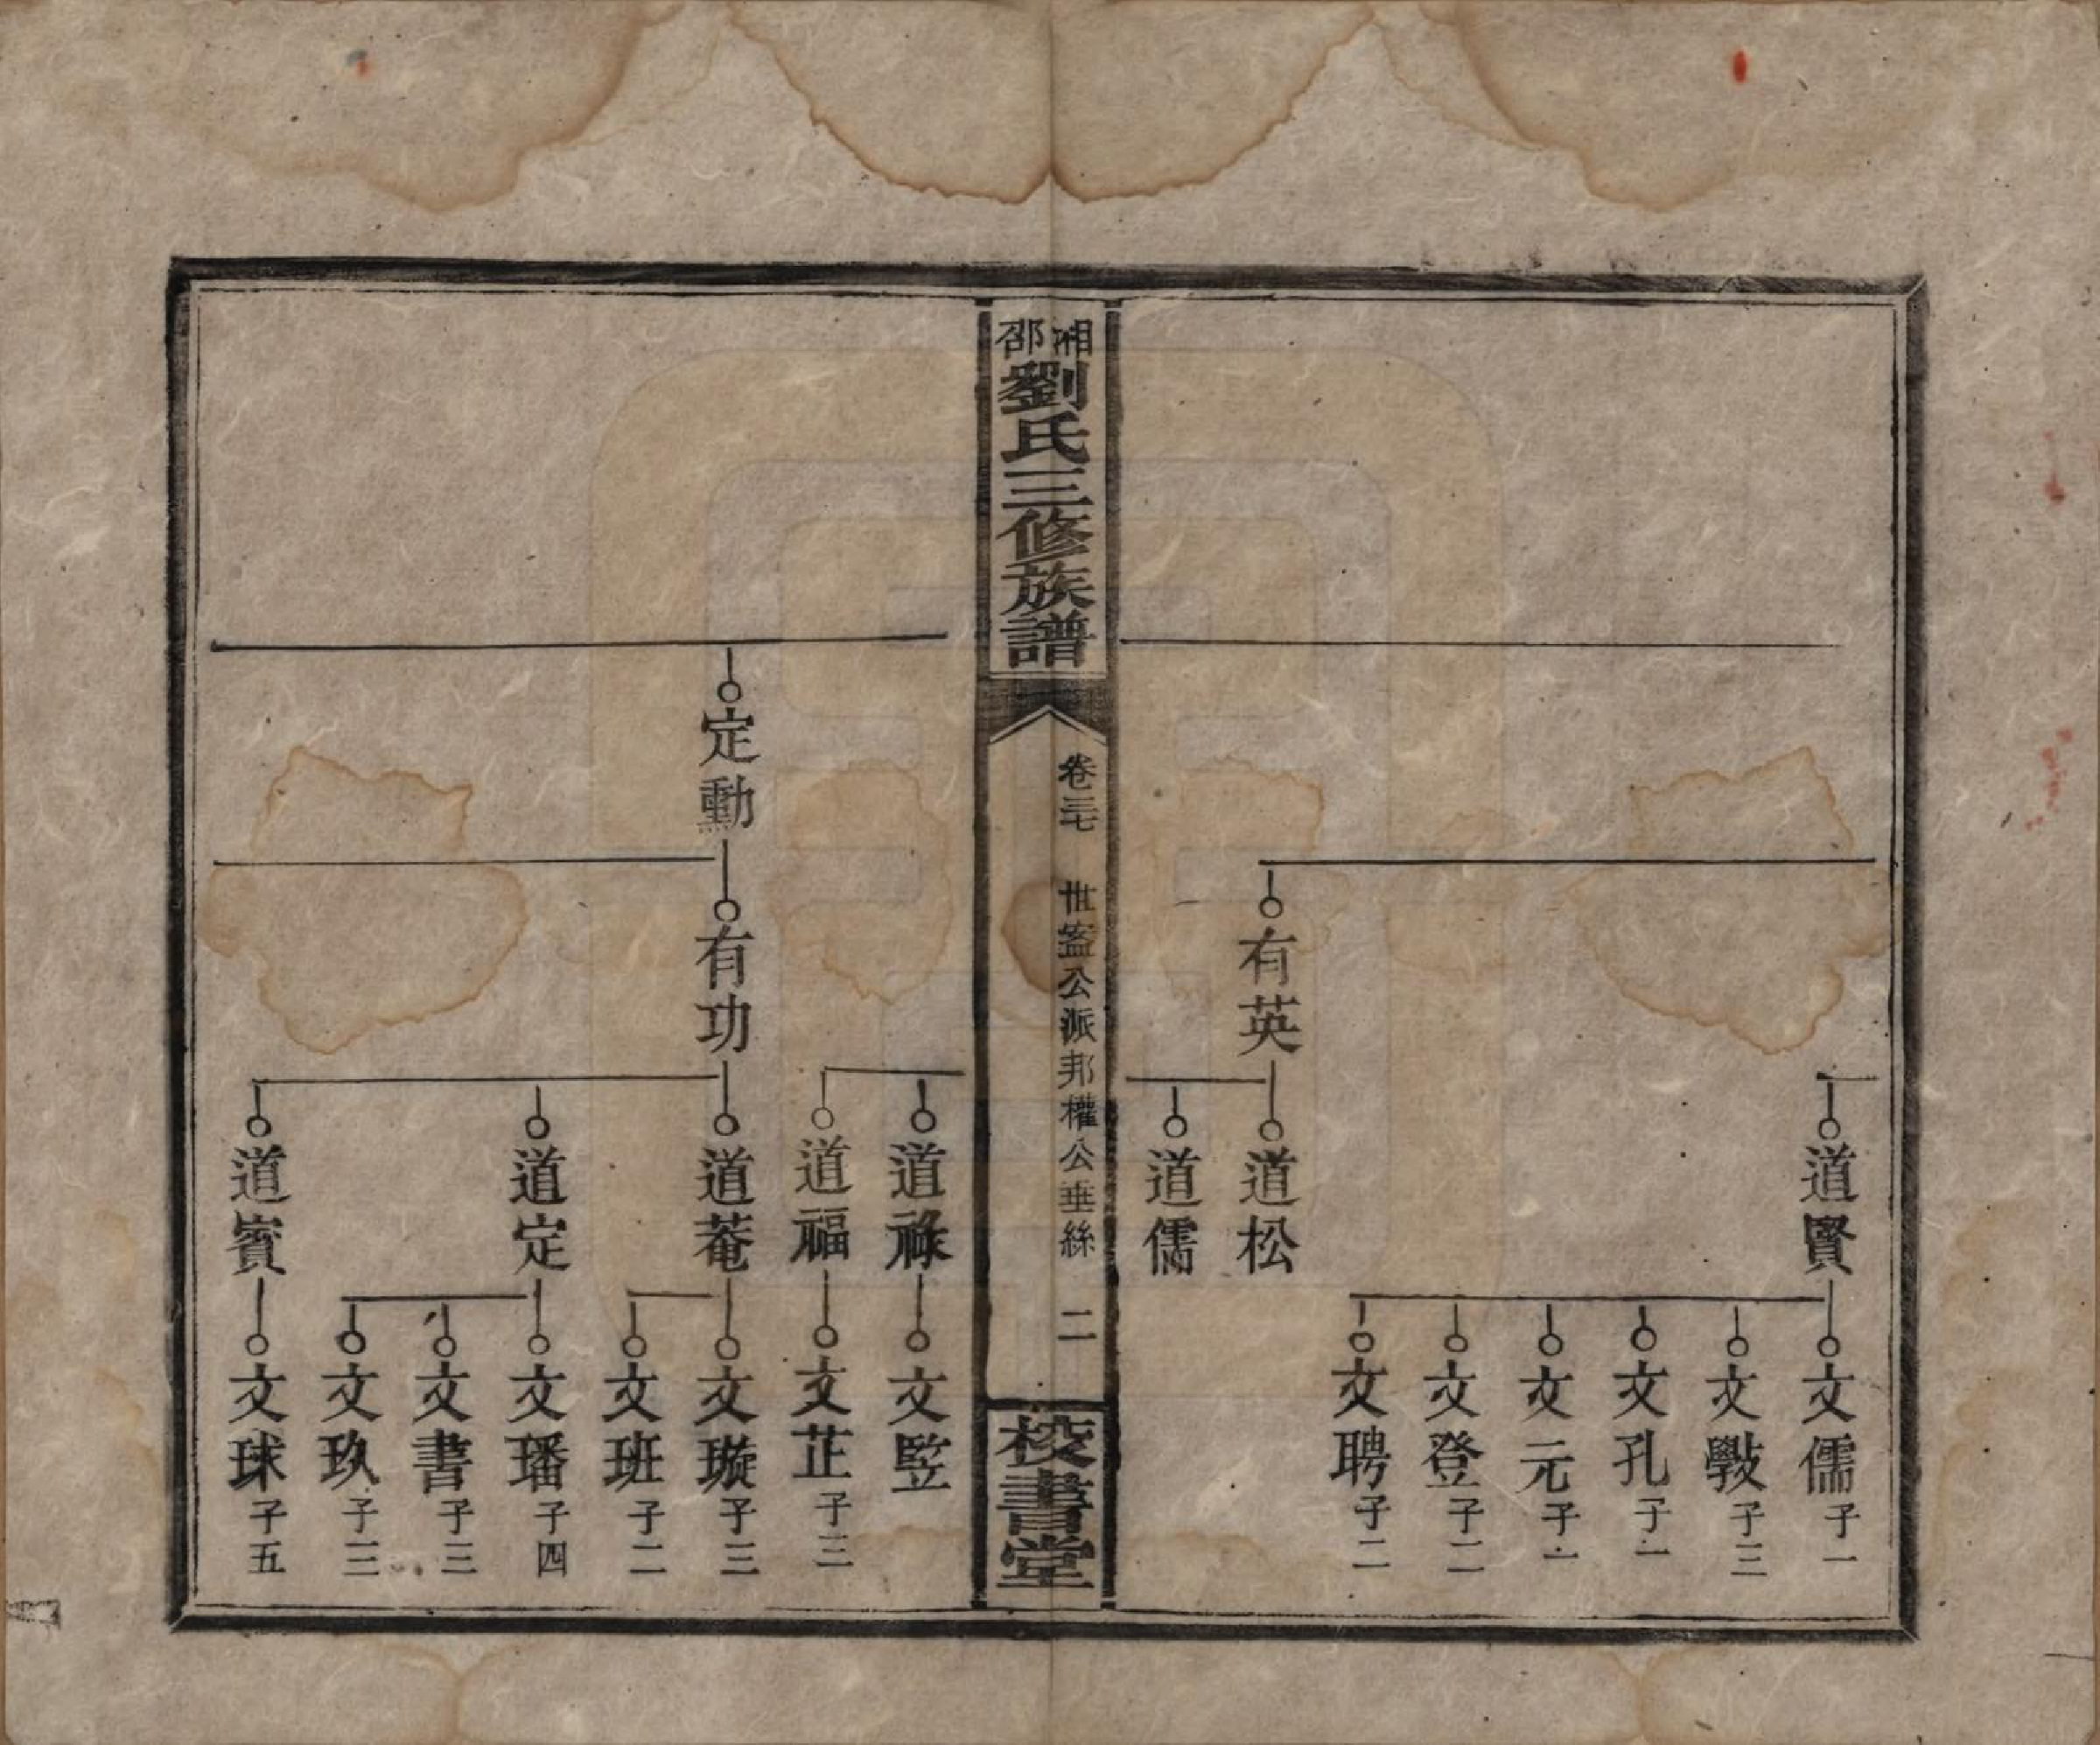 道賢
文儒子一
文斅子三
文孔子一
文元子一
文登子二
文聘子二
有英
道松
道儒
湘邵劉氏三修族譜
卷三七 世盗公派邦權公垂絲 二
校書堂
道祿
文竪
道福
文芷子三
定勳
有功
道菴
文璇子三
文班子二
道定
文璠子四
文書子三
文玖子三
道賓
文球子五